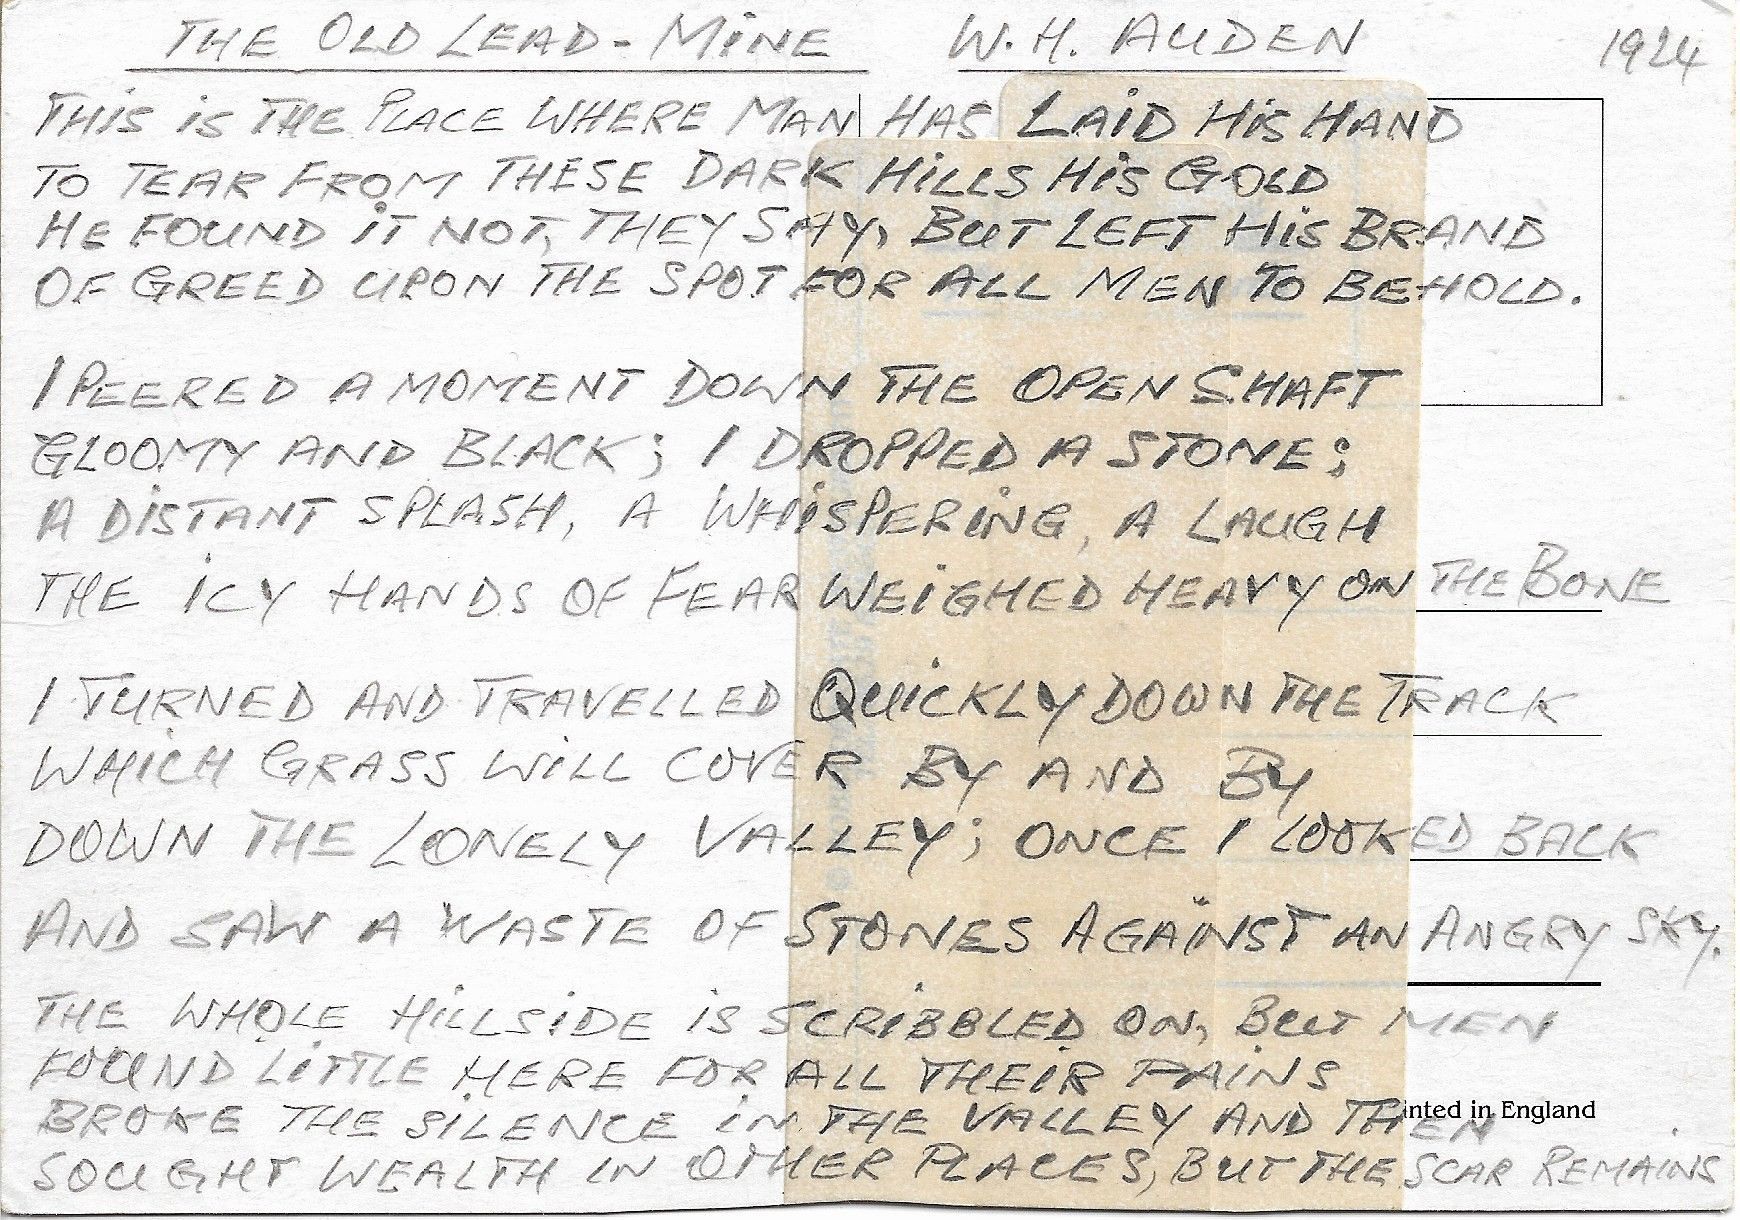 THE OLD LEAD-MINE W.H. AUDEN 1924
THIS IS THE PLACE WHERE MAN HAS LAID HIS HAND
TO TEAR FROM THESE DARK HILLS HIS GOLD
HE FOUND IT NOT, THEY SAY, BUT LEFT HIS BRAND
OF GREED UPON THE SPOT FOR ALL MEN TO BEHOLD.
I PEERED A MOMENT DOWN THE OPEN SHAFT
GLOOMY AND BLACK; I DROPPED A STONE;
A DISTANT SPLASH, A WHISPERING, A LAUGH
THE ICY HANDS OF FEAR WEIGHED HEAVY ON THE BONE
I TURNED AND TRAVELLED QUICKLY DOWN THE TRACK
WHICH GRASS WILL COVER BY AND BY
DOWN THE LONELY VALLEY; ONCE I LOOKED BACK
AND SAW A WASTE OF STONES AGAINST AN ANGRY SKY.
THE WHOLE HILLSIDE IS SCRIBBLED ON, BUT MEN
FOUND LITTLE HERE FOR ALL THEIR PAINS
BROKE THE SILENCE IN THE VALLEY AND THEN
inted in England
SOUGHT WEALTH IN OTHER PLACES, BUT THE SCAR REMAINS